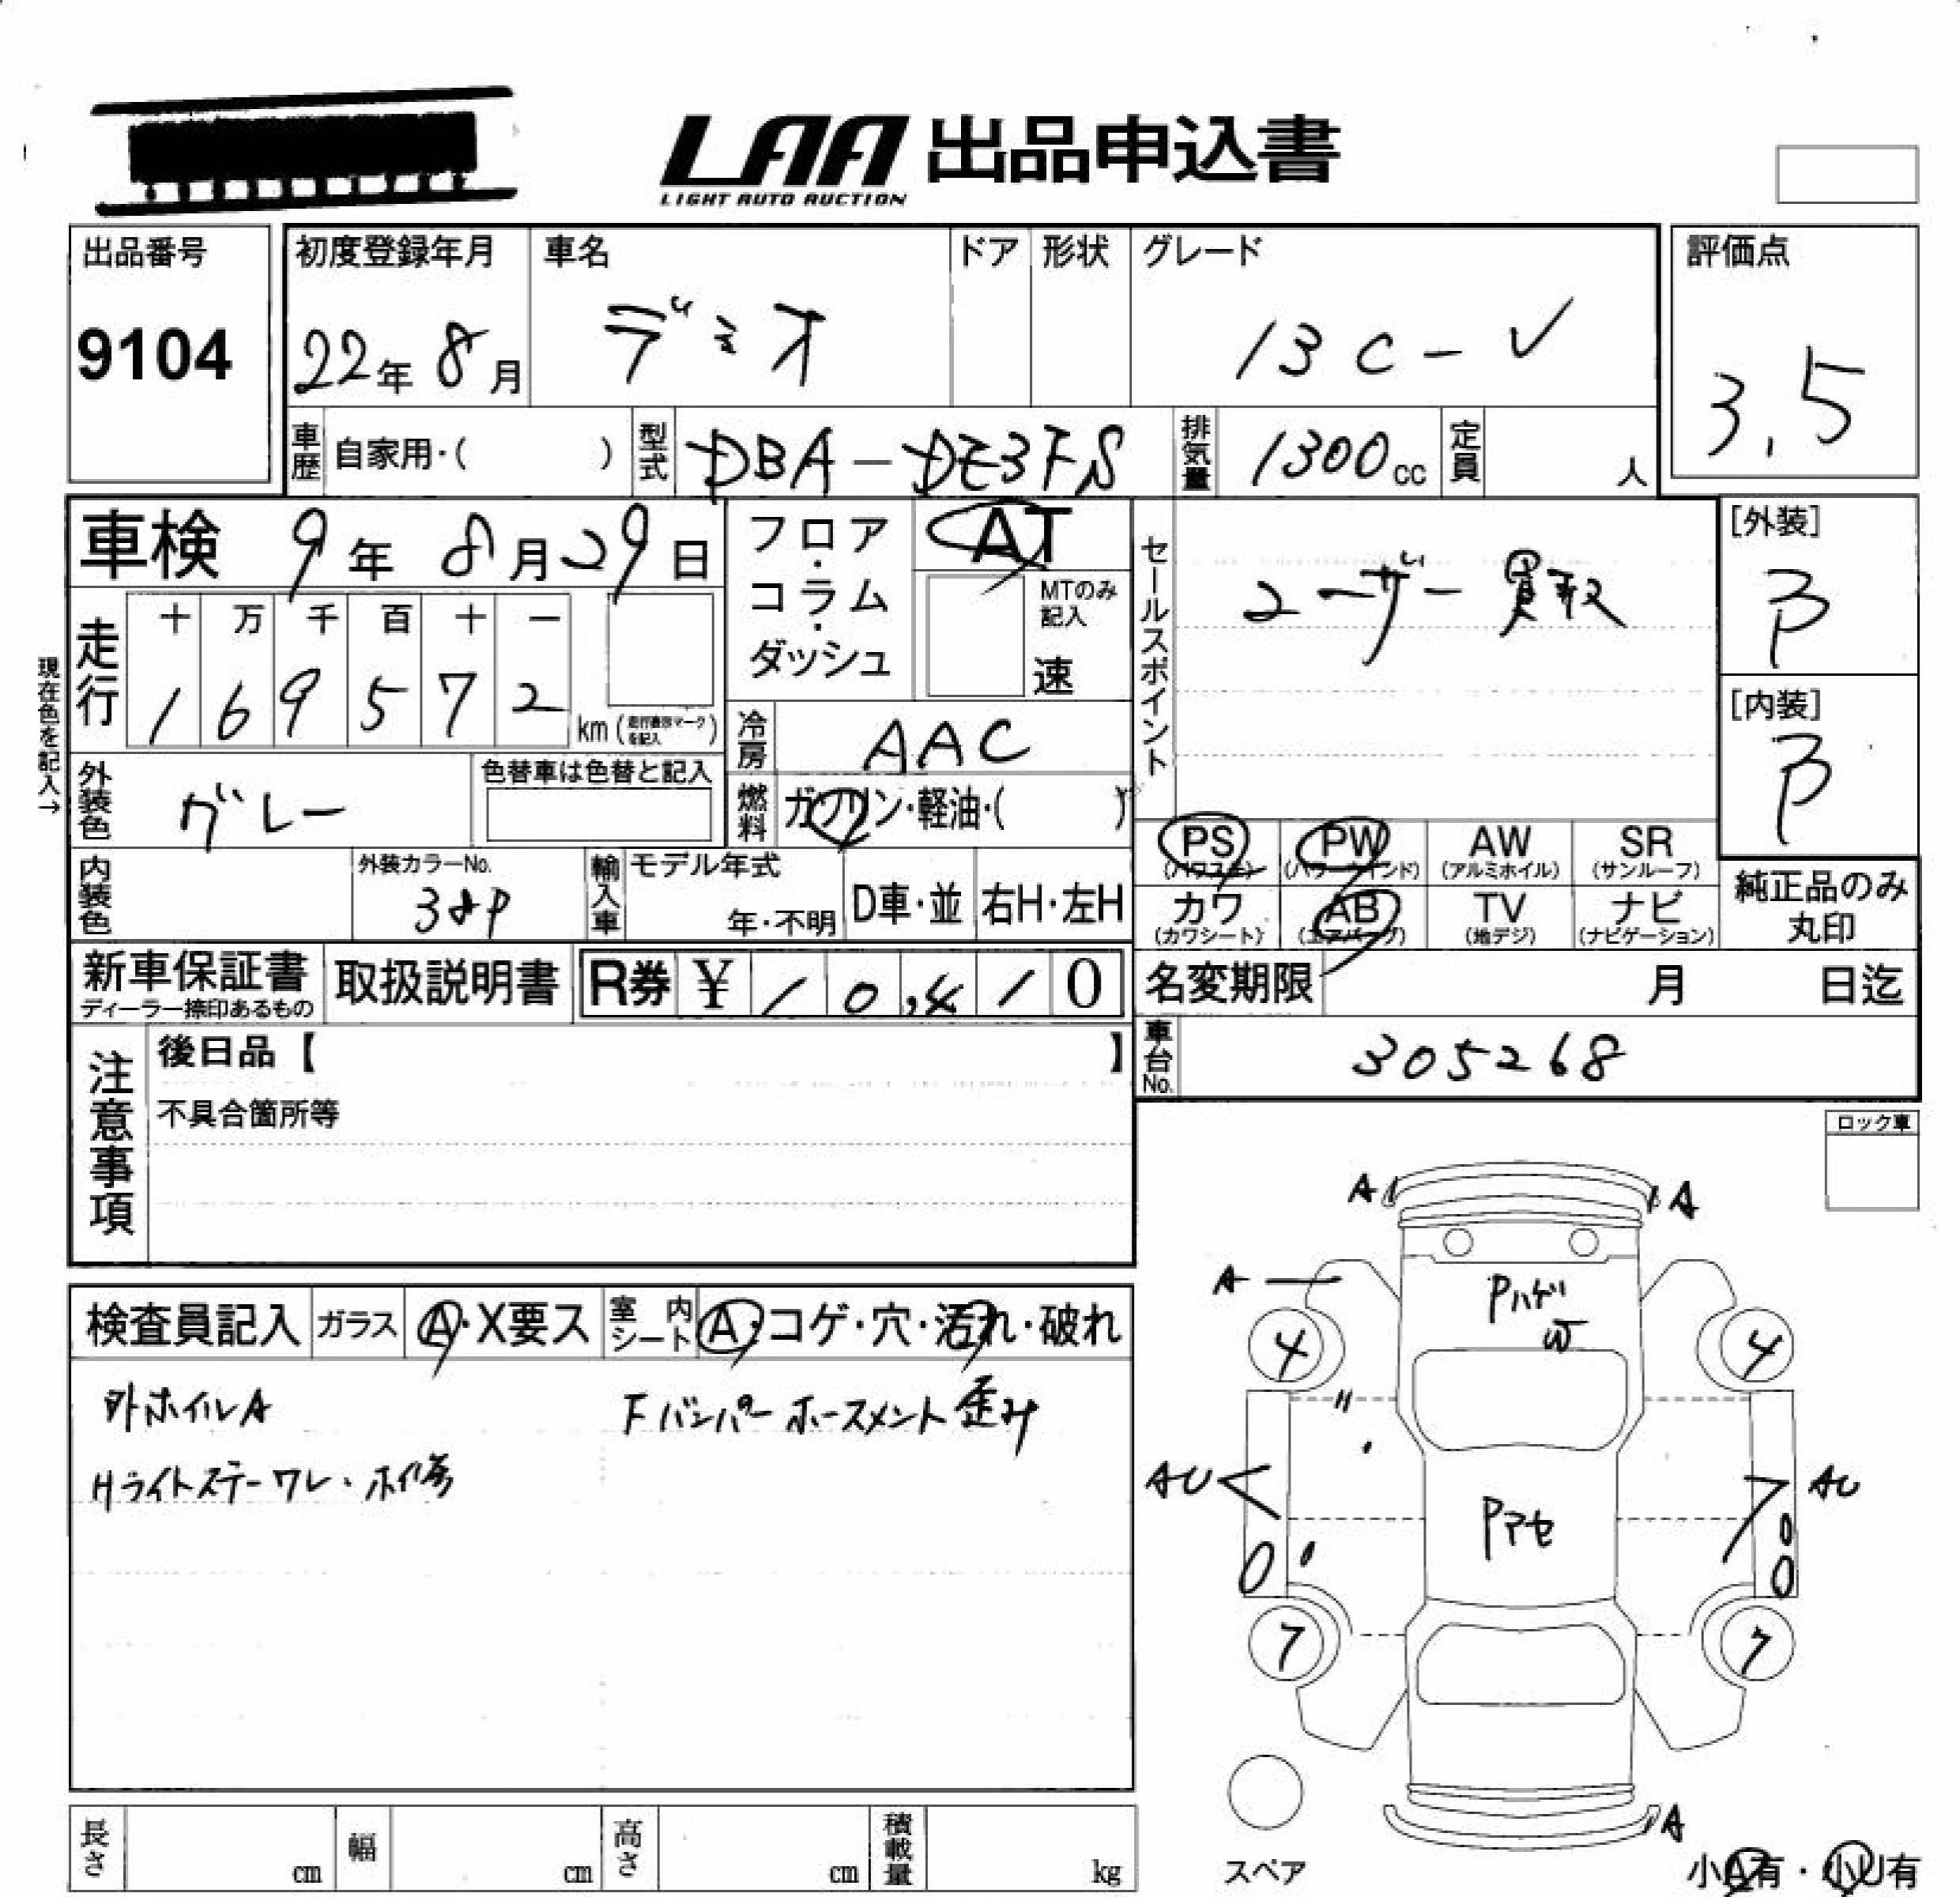 LAA 出品申込書
LIGHT AUTO AUCTION
出品番号
9104
初度登録年月
22年 8月
車名
デミオ
ドア
形状
グレード
13C-V
評価点
3.5
車歴
自家用・( )
型式
DBA-DE3FS
排気量
1300cc
定員
人
車検 9年 8月29日
フロア・コラム・ダッシュ
AT
MTのみ記入
速
セールスポイント
ユーザー買取
[外装]
B
[内装]
B
現在色を記入→
走行
十 万 千 百 十 一
1 6 9 5 7 2
km (走行表示マークを記入)
冷房
AAC
外装色
グレー
色替車は色替と記入
燃料
ガソリン・軽油・( )
PS
(パワステ)
PW
(パワーウインド)
AW
(アルミホイル)
SR
(サンルーフ)
カワ
(カワシート)
AB
(エアバッグ)
TV
(地デジ)
ナビ
(ナビゲーション)
純正品のみ丸印
内装色
外装カラーNo.
38P
輸入車
モデル年式
年・不明
D車・並
右H・左H
新車保証書
ディーラー捺印あるもの
取扱説明書
R券 ¥ 10,410
名変期限
月 日迄
車台No.
305268
注意事項
後日品【 】
不具合箇所等
ロック車
検査員記入
ガラス
A・X要ス
室内シート
A・コゲ・穴・汚れ・破れ
外ホイルA
Fバンパーホースメント歪み
Hライトステーワレ・ホイ修
A
A
A
Pハゲ
W
4
4
AU
AU
Pアセ
7
7
A
スペア
小A有・小U有
長さ
cm
幅
cm
高さ
cm
積載量
kg